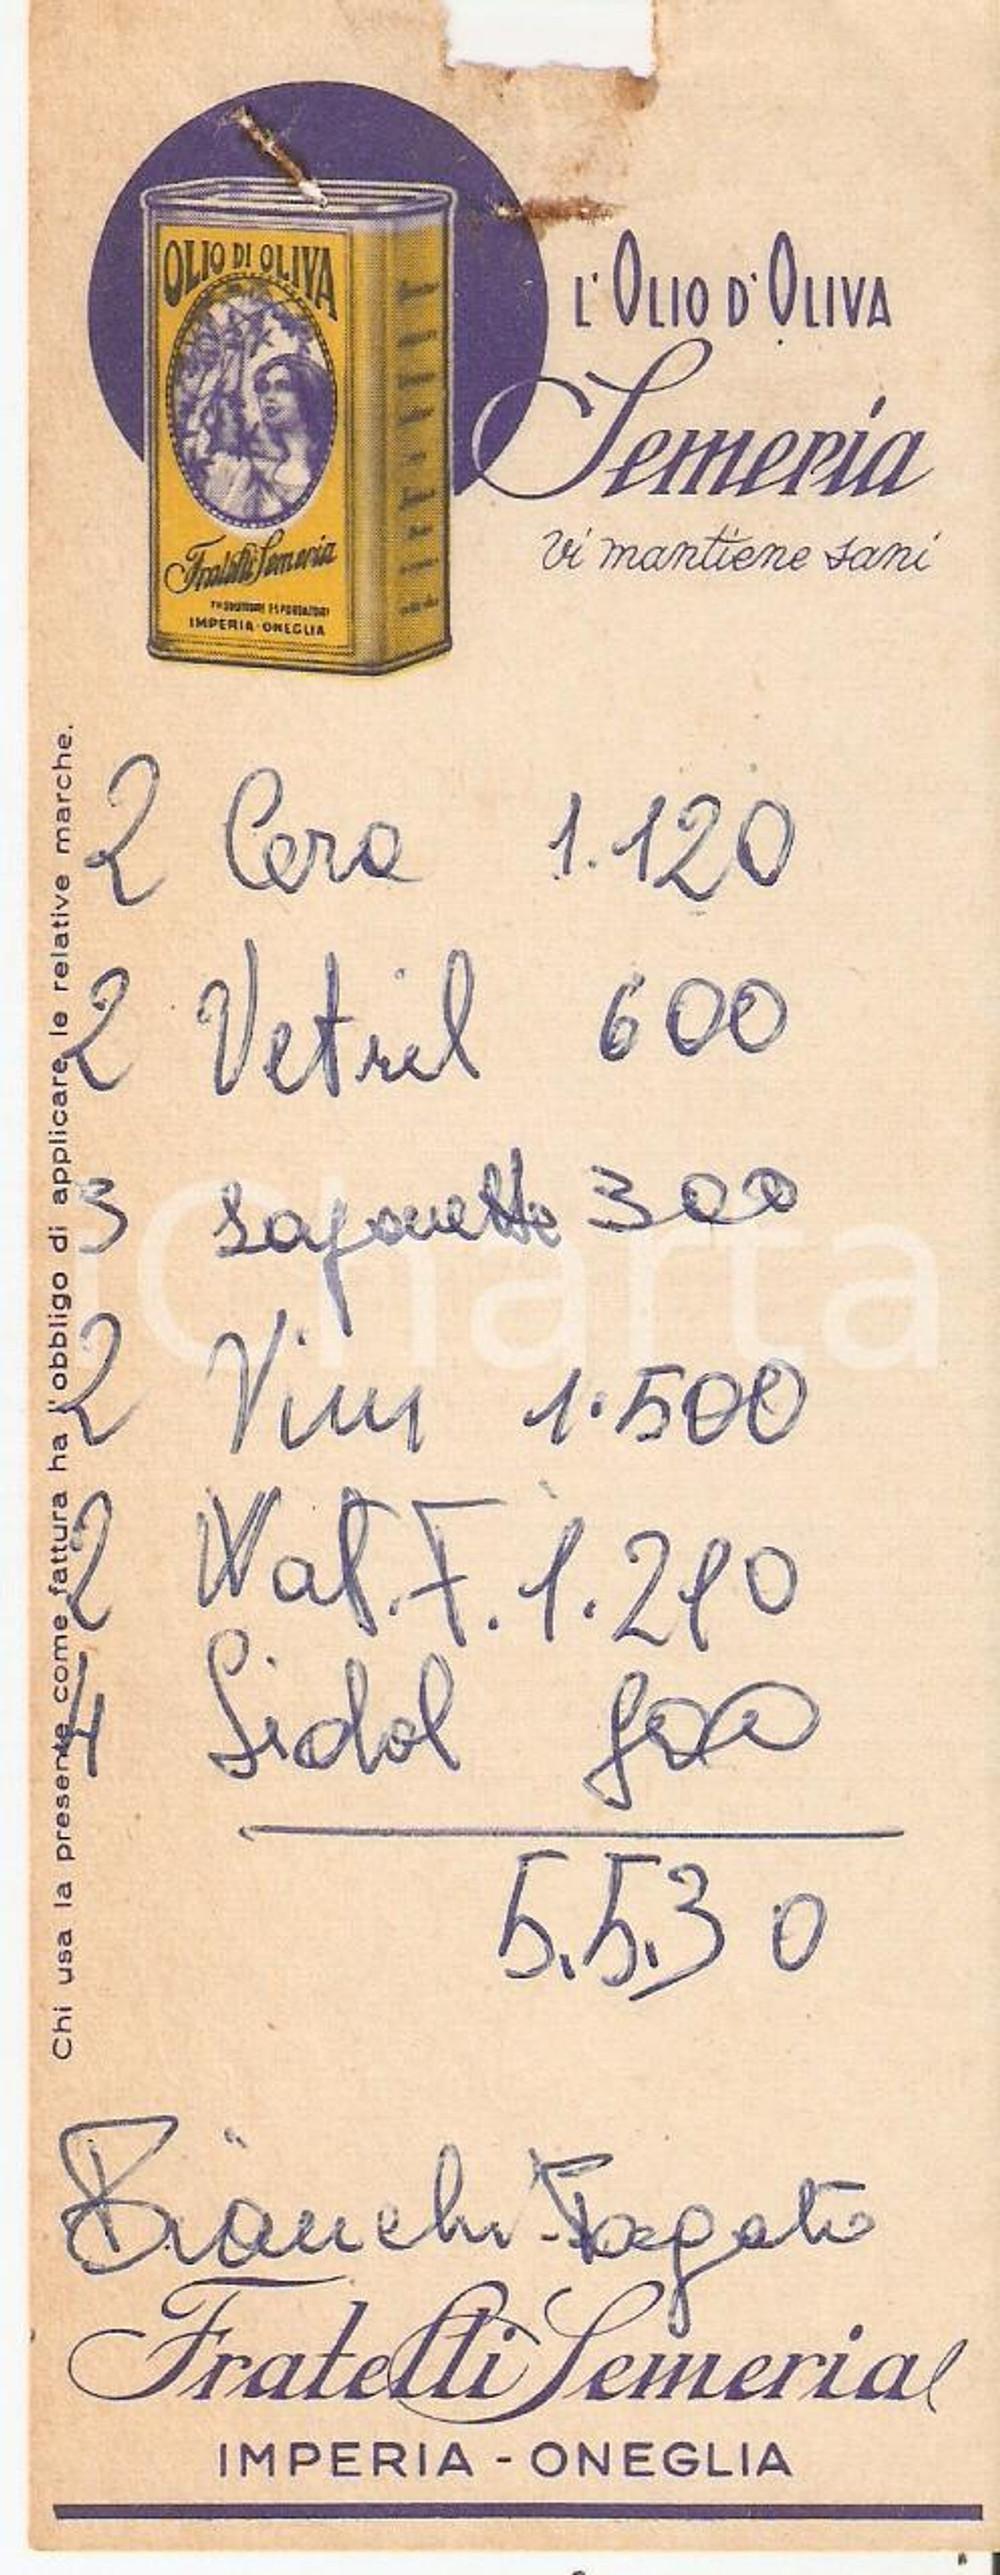 OLIO DI OLIVA
Fratelli Semeria
PRODUTTORI ESPORTATORI
IMPERIA-ONEGLIA
L'OLIO D'OLIVA
Semeria
vi mantiene sani
Chi usa la presente come fattura ha l'obbligo di applicare le relative marche.
2 Cera 1.120
2 Vetril 600
3 saponette 300
2 Vim 1.500
2 Wat.F. 1.210
4 Sidol 800
5.530
Bianchi-Pagato
Fratelli Semeria
IMPERIA - ONEGLIA
Charta